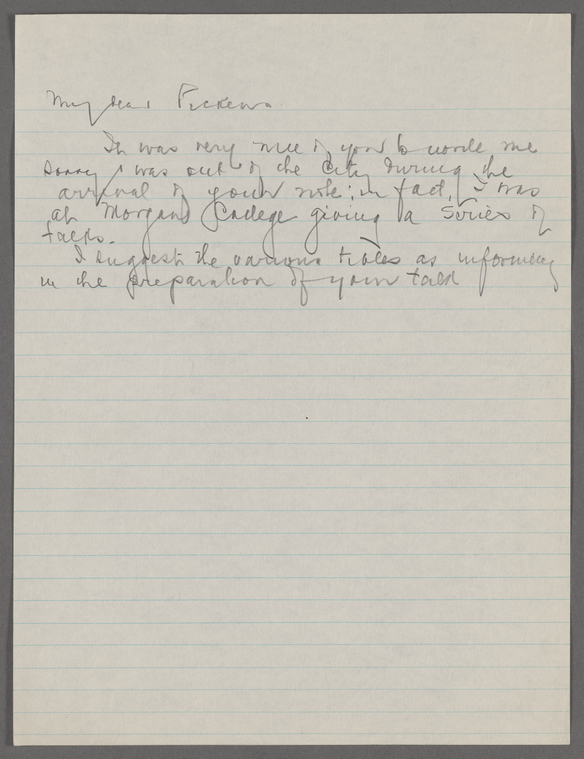 My dear Pickens
It was very nice of you to write me
Sorry I was out of the City during the
arrival of your note; in fact, I was
at Morgan College giving a Series of
talks.
I suggest the various titles as informing
in the preparation of your talk